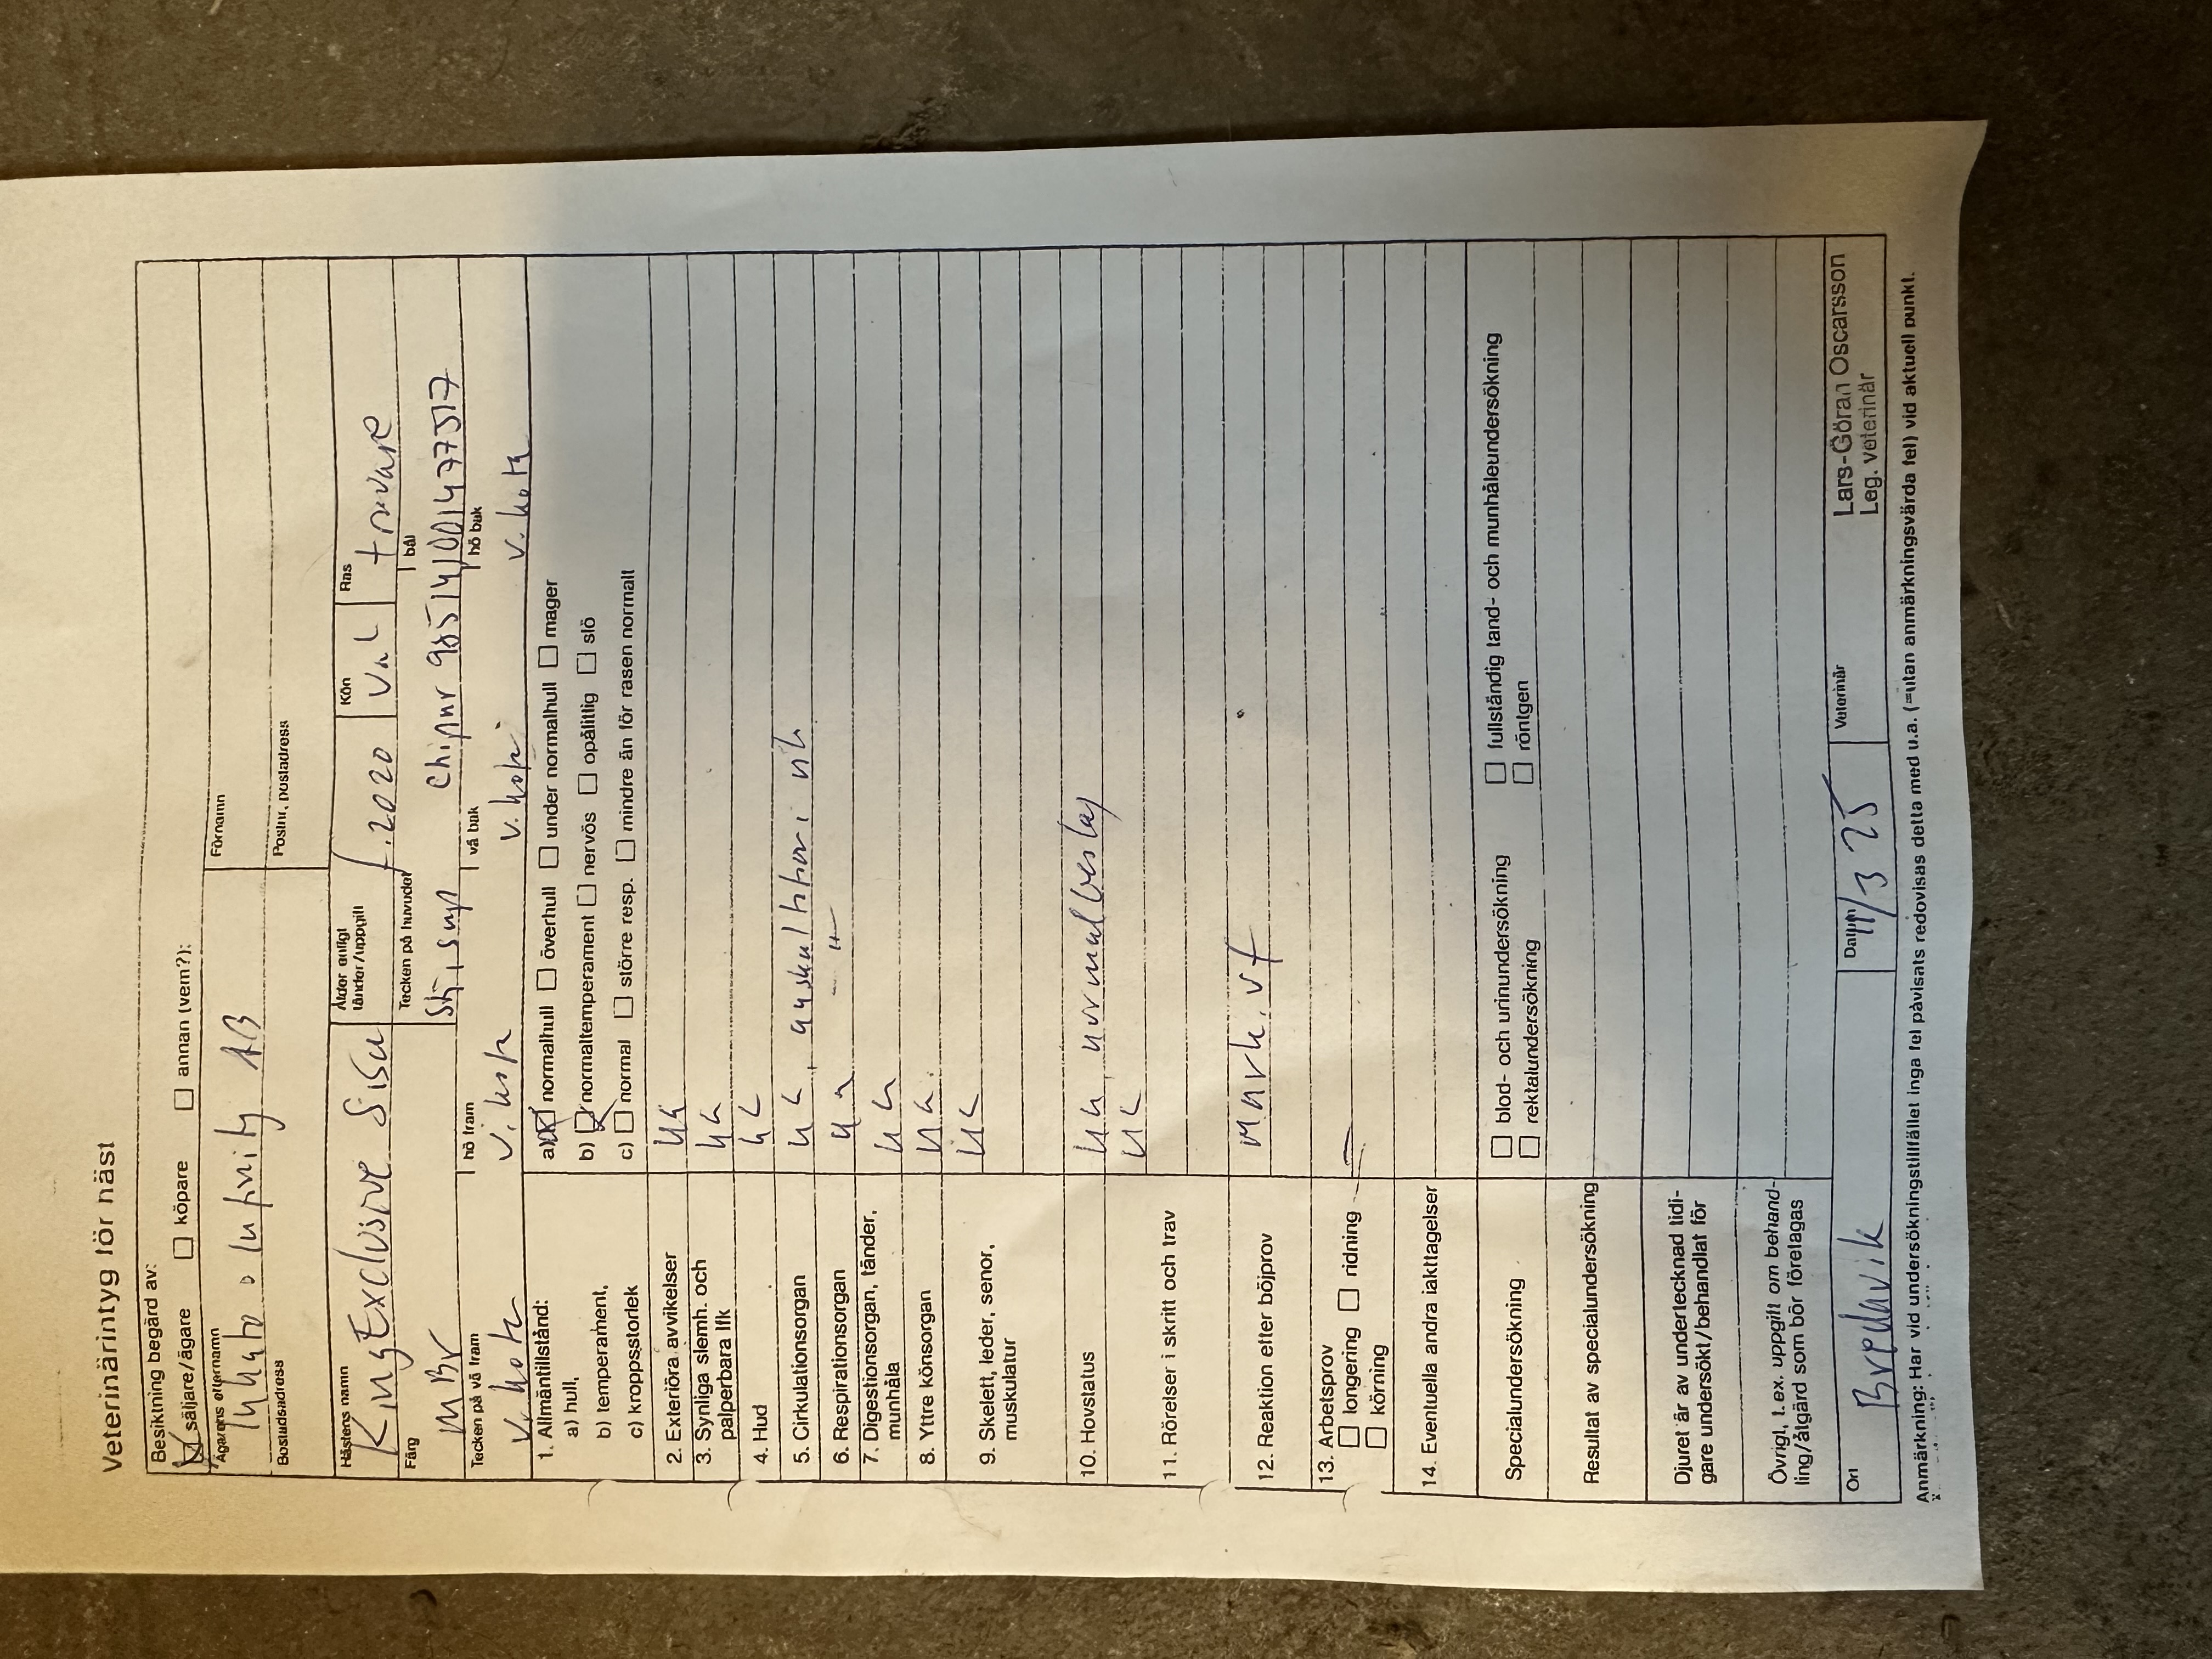 Veterinärintyg för häst
Besiktning begärd av:
säljare/ägare köpare annan (vem?):
Ägarens efternamn Förnamn
AB
Bostadsadress Postnr, postadress
Hästens namn Ålder enligt tänder/uppgift Kön Ras
King Exclusive Sisu f. 2020 Val travare
Färg Tecken på huvudet bål
MBr Chipnr
Tecken på vä fram hö fram vä bak hö bak
v. kota
1. Allmäntillstånd:
a) hull, a) normalhull överhull under normalhull mager
b) temperament, b) normaltemperament nervös opålitlig slö
c) kroppsstorlek c) normal större resp. mindre än för rasen normalt
2. Exteriöra avvikelser
3. Synliga slemh. och
palperbara lfk
4. Hud
5. Cirkulationsorgan
6. Respirationsorgan
7. Digestionsorgan, tänder,
munhåla
8. Yttre könsorgan
9. Skelett, leder, senor,
muskulatur
10. Hovstatus normalbeslag
11. Rörelser i skritt och trav
12. Reaktion efter böjprov Mark. vf
13. Arbetsprov
longering ridning
körning
14. Eventuella andra iakttagelser
Specialundersökning blod- och urinundersökning fullständig tand- och munhåleundersökning
rektalundersökning röntgen
Resultat av specialundersökning
Djuret är av undertecknad tidi-
gare undersökt/behandlat för
Övrigt, t.ex. uppgift om behand-
ling/åtgärd som bör företagas
Ort Datum Veterinär
Bredavik 11/3 25 Lars-Göran Oscarsson
Leg. veterinär
Anmärkning: Har vid undersökningstillfället inga fel påvisats redovisas detta med u.a. (=utan anmärkningsvärda fel) vid aktuell punkt.